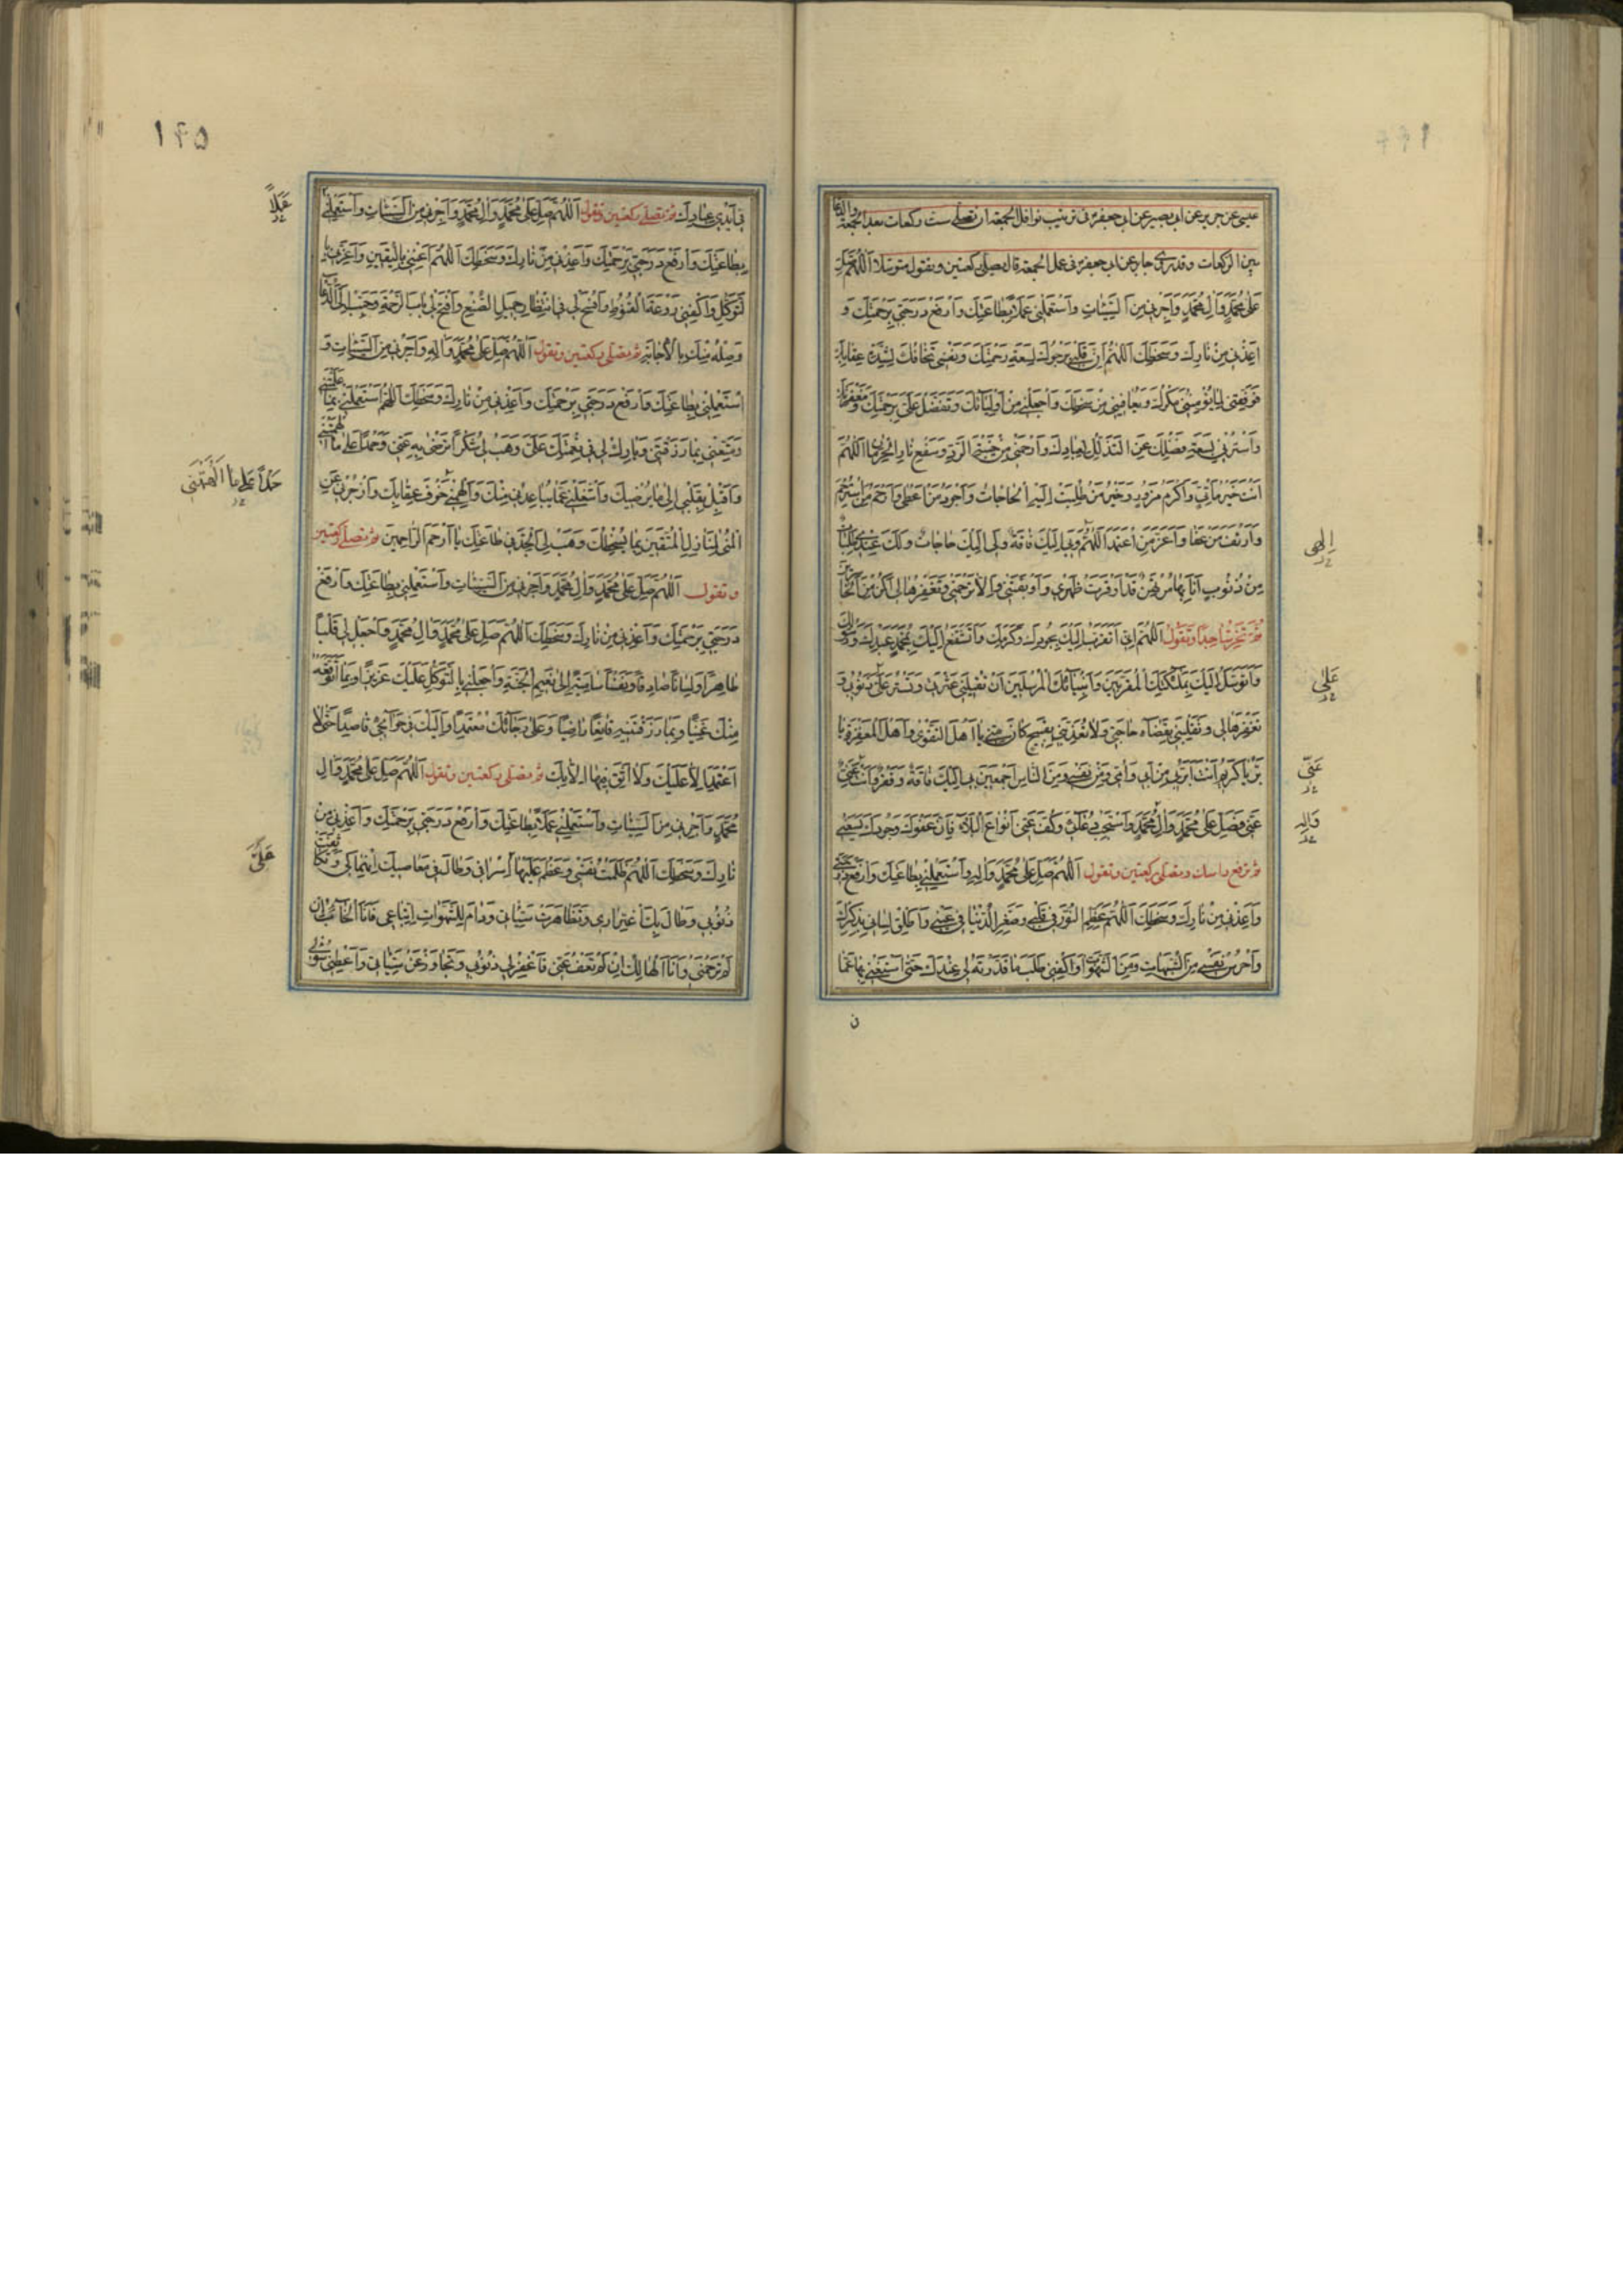 عيسى عن حريز عن ابى بصير عن ابى جعفر فى ترتيب نوافل الجمعة ان تصلى ست ركعات بعد الجمعة والدعا
بين الركعات وقد روى جابر عن ابى جعفر فى عمل الجمعة قال تصلى ركعتين وتقول متوسلا اَللّهُمَّ صَلِّ
عَلى مُحَمَّدٍ وَآلِ مُحَمَّدٍ وَاَجِرْنى مِنَ السَّيِّئاتِ وَاسْتَعْمِلْنى عَمَلاً بِطاعَتِكَ وَارْفَعْ دَرَجَتى بِرَحْمَتِكَ وَ
اَعِذْنى مِنْ نارِكَ وَسَخَطِكَ اَللّهُمَّ اِنَّ قَلْبى يَرْجُوكَ لِسَعَةِ رَحْمَتِكَ وَنَفْسى تَخافُكَ لِشِدَّةِ عِقابِكَ
فَوَفِّقْنى لِما يُؤْمِنُنى مَكْرَكَ وَيُعافينى مِنْ سَخَطِكَ وَاجْعَلْنى مِنْ اَوْلِيائِكَ وَتَفَضَّلْ عَلَىَّ بِرَحْمَتِكَ وَمَغْفِرَتِكَ
وَاسْتُرْنى بِسَعَةِ فَضْلِكَ عَنِ التَّذَلُّلِ لِعِبادِكَ وَارْحَمْنى مِنْ خَيْبَةِ الرَّدِّ وَسَفْعِ نارِ الْحِرْمانِ اَللّهُمَّ
اَنْتَ خَيْرُ مَأْتِىٍّ وَاَكْرَمُ مَزُورٍ وَخَيْرُ مَنْ طُلِبَتْ اِلَيْهِ الْحاجاتُ وَاَجْوَدُ مَنْ اَعْطى وَاَرْحَمُ مَنِ اسْتُرْحِمَ
وَاَرْئَفُ مَنْ عَفا وَاَعَزُّ مَنِ اعْتُمِدَ اَللّهُمَّ وَبى اِلَيْكَ فاقَةٌ وَلى اِلَيْكَ حاجاتٌ وَلَكَ عِنْدى طَلِباتٌ
اِلهى
مِنْ ذُنُوبٍ اَنَا بِها مُرْتَهَنٌ قَدْ اَوْقَرَتْ ظَهْرى وَاَوْبَقَتْنى وَاِلاّ تَرْحَمْنى وَتَغْفِرْها لى اَكُنْ مِنَ الْخاسِرينَ
ثُمَّ تَخِرُّ ساجِدًا وَتَقُولُ اَللّهُمَّ اِنّى اَتَقَرَّبُ اِلَيْكَ بِجُودِكَ وَكَرَمِكَ وَاَتَشَفَّعُ اِلَيْكَ بِمُحَمَّدٍ عَبْدِكَ وَرَسُولِكَ
وَاَتَوَسَّلُ اِلَيْكَ بِمَلائِكَتِكَ الْمُقَرَّبينَ وَاَنْبِيائِكَ الْمُرْسَلينَ اَنْ تُقيلَنى عَثْرَتى وَتَسْتُرَ عَلَىَّ ذُنُوبى وَ
عَلى
تَغْفِرَها لى وَتَقْلِبَنى بِقَضاءِ حاجَتى وَلا تُعَذِّبَنى بِقَبيحٍ كانَ مِنّى يا اَهْلَ التَّقْوى وَاَهْلَ الْمَغْفِرَةِ يا
بَرُّ يا كَريمُ اَنْتَ اَبَرُّ بى مِنْ اَبى وَاُمّى وَمِنْ نَفْسى وَمِنَ النّاسِ اَجْمَعينَ بى اِلَيْكَ فاقَةٌ وَفَقْرٌ وَاَنْتَ غَنِىٌّ
غَنِىّ
عَنّى فَصَلِّ عَلى مُحَمَّدٍ وَآلِ مُحَمَّدٍ وَاسْتَجِبْ دُعائى وَكُفَّ عَنّى اَنْواعَ الْبَلاءِ فَاِنَّ عَفْوَكَ وَجُودَكَ يَسَعُنى
وَآلِهِ
ثم ترفع راسك وتصلى ركعتين وتقول اَللّهُمَّ صَلِّ عَلى مُحَمَّدٍ وَآلِهِ وَاسْتَعْمِلْنى بِطاعَتِكَ وَارْفَعْ دَرَجَتى
وَاَعِذْنى مِنْ نارِكَ وَسَخَطِكَ اَللّهُمَّ عَظِّمِ النُّورَ فى قَلْبى وَصَغِّرِ الدُّنْيا فى عَيْنى وَاَطْلِقْ لِسانى بِذِكْرِكَ
وَاحْرُسْ نَفْسى مِنَ الشُّبُهاتِ وَمِنَ الشَّهَواتِ وَاكْفِنى طَلَبَ ما قَدَّرْتَهُ لى عِنْدَكَ حَتّى اَسْتَغْنِىَ بِها عَمّا
ن
١٤٥
فى اَيْدى عِبادِكَ ثم تصلى ركعتين وتقول اَللّهُمَّ صَلِّ عَلى مُحَمَّدٍ وَآلِ مُحَمَّدٍ وَاَجِرْنى مِنَ السَّيِّئاتِ وَاسْتَعْمِلْنى
عَمَلاً
بِطاعَتِكَ وَارْفَعْ دَرَجَتى بِرَحْمَتِكَ وَاَعِذْنى مِنْ نارِكَ وَسَخَطِكَ اَللّهُمَّ اَغْنِنى بِالْيَقينِ وَاَعِزَّنى بِا
لتَّوَكُّلِ وَاكْفِنى رَوْعَةَ الْقُنُوطِ وَافْسَحْ لى فى انْتِظارِ جَميلِ الصُّنْعِ وَافْتَحْ لى بابَ الرَّحْمَةِ وَحَبِّبْ اِلَىَّ الدُّعا
وَصِلْهُ مِنْكَ بِالْاِجابَةِ ثم تصلى ركعتين وتقول اَللّهُمَّ صَلِّ عَلى مُحَمَّدٍ وَآلِهِ وَاَجِرْنى مِنَ السَّيِّئاتِ وَ
اسْتَعْمِلْنى بِطاعَتِكَ وَارْفَعْ دَرَجَتى بِرَحْمَتِكَ وَاَعِذْنى مِنْ نارِكَ وَسَخَطِكَ اَللّهُمَّ اسْتَعْمِلْنى بِما عَلَّمْتَنى
وَمَتِّعْنى بِما رَزَقْتَنى وَبارِكْ لى فى نِعْمَتِكَ عَلَىَّ وَهَبْ لى شُكْرًا تَرْضى بِهِ عَنّى وَحَمْدًا عَلى ما اَلْهَمْتَنى
حَمْدًا عَلى ما اَلْهَمْتَنى
وَاَقْبِلْ بِقَلْبى اِلى ما يُرْضيكَ وَاشْغَلْنى عَمّا يُباعِدُنى مِنْكَ وَاَلْهِمْنى خَوْفَ عِقابِكَ وَازْجُرْنى عَنِ
الْمُنى لِمَنازِلِ الْمُتَّقينَ بِما يُسْخِطُكَ وَهَبْ لِىَ الْجِدَّ فى طاعَتِكَ يا اَرْحَمَ الرّاحِمينَ ثم تصلى ركعتين
وتقول اَللّهُمَّ صَلِّ عَلى مُحَمَّدٍ وَآلِ مُحَمَّدٍ وَاَجِرْنى مِنَ السَّيِّئاتِ وَاسْتَعْمِلْنى بِطاعَتِكَ وَارْفَعْ
دَرَجَتى بِرَحْمَتِكَ وَاَعِذْنى مِنْ نارِكَ وَسَخَطِكَ اَللّهُمَّ صَلِّ عَلى مُحَمَّدٍ وَآلِ مُحَمَّدٍ وَاجْعَلْ لى قَلْبًا
طاهِرًا وَلِسانًا صادِقًا وَنَفْسًا سامِيَةً اِلى نَعيمِ الْجَنَّةِ وَاجْعَلْنى بِالتَّوَكُّلِ عَلَيْكَ عَزيزًا وَبِما اَتَوَقَّعُهُ
مِنْكَ غَنِيًّا وَبِما رَزَقْتَنيهِ قانِعًا راضِيًا وَعَلى رَجائِكَ مُعْتَمِدًا وَاِلَيْكَ فى حَوائِجى قاصِدًا حَتّى لا
اَعْتَمِدَ اِلاّ عَلَيْكَ وَلا اَثِقَ فيها اِلاّ بِكَ ثم تصلى ركعتين وتقول اَللّهُمَّ صَلِّ عَلى مُحَمَّدٍ وَآلِ
مُحَمَّدٍ وَاَجِرْنى مِنَ السَّيِّئاتِ وَاسْتَعْمِلْنى عَمَلاً بِطاعَتِكَ وَارْفَعْ دَرَجَتى بِرَحْمَتِكَ وَاَعِذْنى مِنْ
نارِكَ وَسَخَطِكَ اَللّهُمَّ ظَلَمْتُ نَفْسى وَعَظُمَ عَلَيْها اِسْرافى وَطالَ فى مَعاصيكَ انْهِماكى وَتَكاثَفَتْ
عَلَىَّ
ذُنُوبى وَطالَ بِكَ اغْتِرارى وَتَظاهَرَتْ سَيِّئاتى وَدامَ لِلشَّهَواتِ اتِّباعى فَاَنَا الْخائِبُ اِنْ
لَمْ تَرْحَمْنى وَاَنَا الْهالِكُ اِنْ لَمْ تَعْفُ عَنّى فَاغْفِرْ لى ذُنُوبى وَتَجاوَزْ عَنْ سَيِّئاتى وَاَعْطِنى سُؤْلى